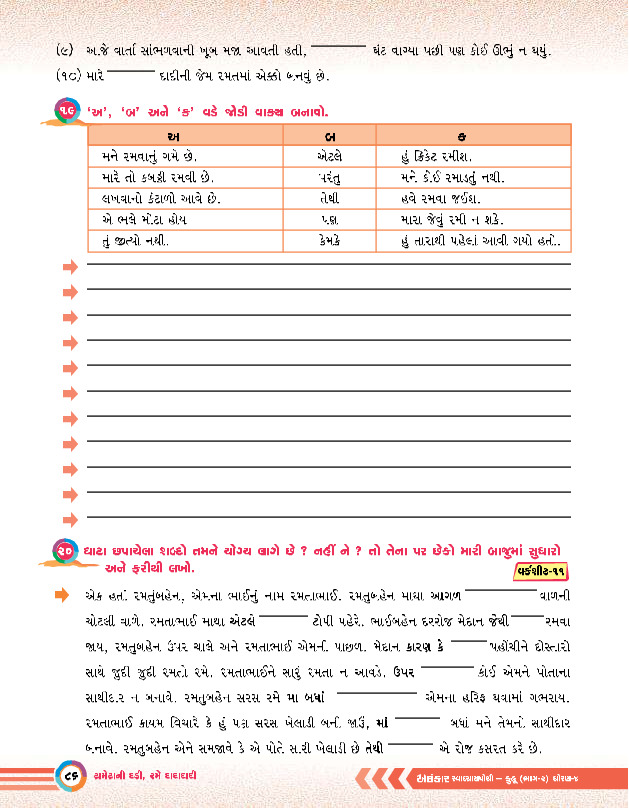 (૯) અ.જે વાર્તા સાંભળવાની ખૂબ મજા આવતી હતી, ________ ઘંટ વાગ્યા પછી પણ કોઈ ઊભું ન થયું.
(૧૦) મારે ________ દાદીની જેમ રમતમાં એક્કો બનવું છે.
૧૯ ‘અ’, ‘બ’ અને ‘ક’ વડે જોડી વાક્ય બનાવો.
અ બ ક
મને રમવાનું ગમે છે. એટલે હું ક્રિકેટ રમીશ.
મારે તો કબડ્ડી રમવી છે. પરંતુ મને કોઈ રમાડતું નથી.
લખવાનો કંટાળો આવે છે. તેથી હવે રમવા જઈશ.
એ ભલે મોટા હોય પણ મારા જેવું રમી ન શકે.
તું જીત્યો નથી. કેમકે હું તારાથી પહેલાં આવી ગયો હતો..
૨૦ ઘાટા છપાયેલા શબ્દો તમને યોગ્ય લાગે છે ? નહીં ને ? તો તેના પર છેકો મારી બાજુમાં સુધારો
અને ફરીથી લખો.
વર્કશીટ-૧૧
એક હતાં રમતુંબહેન, એમના ભાઈનું નામ રમતાભાઈ. રમતુબહેન માથા આગળ ________ વાળની
ચોટલી વાળે. રમતાભાઈ માથા એટલે ________ ટોપી પહેરે. ભાઈબહેન દરરોજ મેદાન જેથી ________ રમવા
જાય, રમતુબહેન ઉપર ચાલે અને રમતાભાઈ એમની પાછળ. મેદાન કારણ કે ________ પહોંચીને દોસ્તારો
સાથે જુદી જુદી રમતો રમે. રમતાભાઈને સારું રમતા ન આવડે. ઉપર ________ કોઈ એમને પોતાના
સાથીદાર ન બનાવે. રમતુબહેન સરસ રમે મા બધાં ________ એમના હરિફ થવામાં ગભરાય.
રમતાભાઈ કાયમ વિચારે કે હું પણ સરસ ખેલાડી બની જાઉં, માં ________ બધાં મને તેમનો સાથીદાર
બનાવે. રમતુબહેન એને સમજાવે કે એ પોતે સારી ખેલાડી છે તેથી ________ એ રોજ કસરત કરે છે.
૮૬ રામેતાની દડી, રમે દાદાદાદી
અલંકાર સ્વાધ્યાયપોથી – કુહૂ (ભાગ-૨) ધોરણ-૪